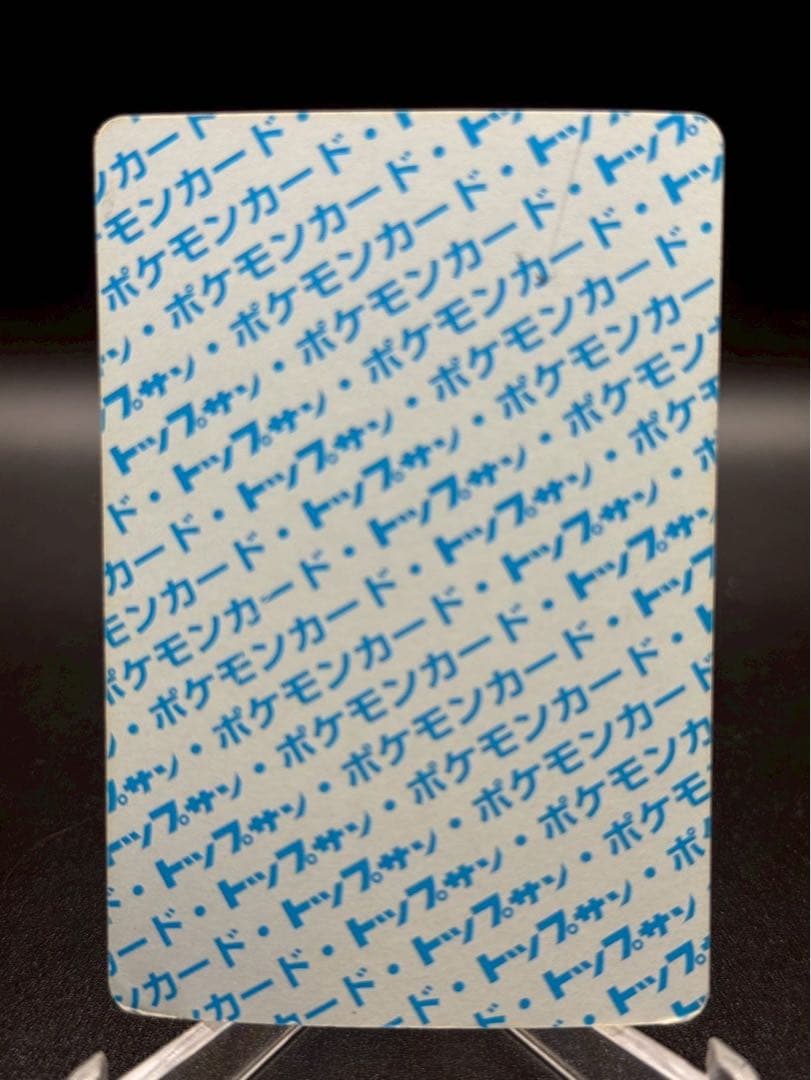 ンカード
モンカード・ト
ポケモンカード・トッ
ン・ポケモンカード・トッ
プサン・ポケモンカード・トップ
トップサン・ポケモンカード・トッ
ド・トップサン・ポケモンカード・
カード・トップサン・ポケモンカー
モンカード・トップサン・ポケモン
ポケモンカード・トップサン・ポケ
・ポケモンカード・トップサン・ポ
プサン・ポケモンカード・トップサン
トップサン・ポケモンカード・トップ
・トップサン・ポケモンカード・ト
ード・トップサン・ポケモンカード
ンカード・トップサン・ポケモンカ
カード・トップサン・ポケモ
ド・トップサン・ポ
トップサン・
トップ